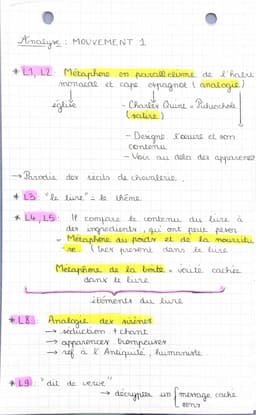 Analyse : MOUVEMENT 1
* L1, L2 : Métaphore en parallélisme de l'habit
monacal et cape espagnol (analogie)
église
- Charles Quint = Picrochole
(satire)
- Désigne l'œuvre et son
contenu
- Voir au delà des apparences
→ Parodie des récits de chevalerie.
* L3 : "le livre" = le thème
* L4, L5 : Il compare le contenu du livre à
des ingrédients, qui ont peu
- Métaphore du poids et de la nourritu
-re (très présent dans le livre
Métaphore de la boîte = voute cachée
dans le livre
éléments du livre
* L8 : Analogie des sirènes
→ séduction + chant
→ apparences trompeuses
→ réf à l'Antiquité, humaniste
* L9 : "dit de verve"
→ décrypter un message caché
sens